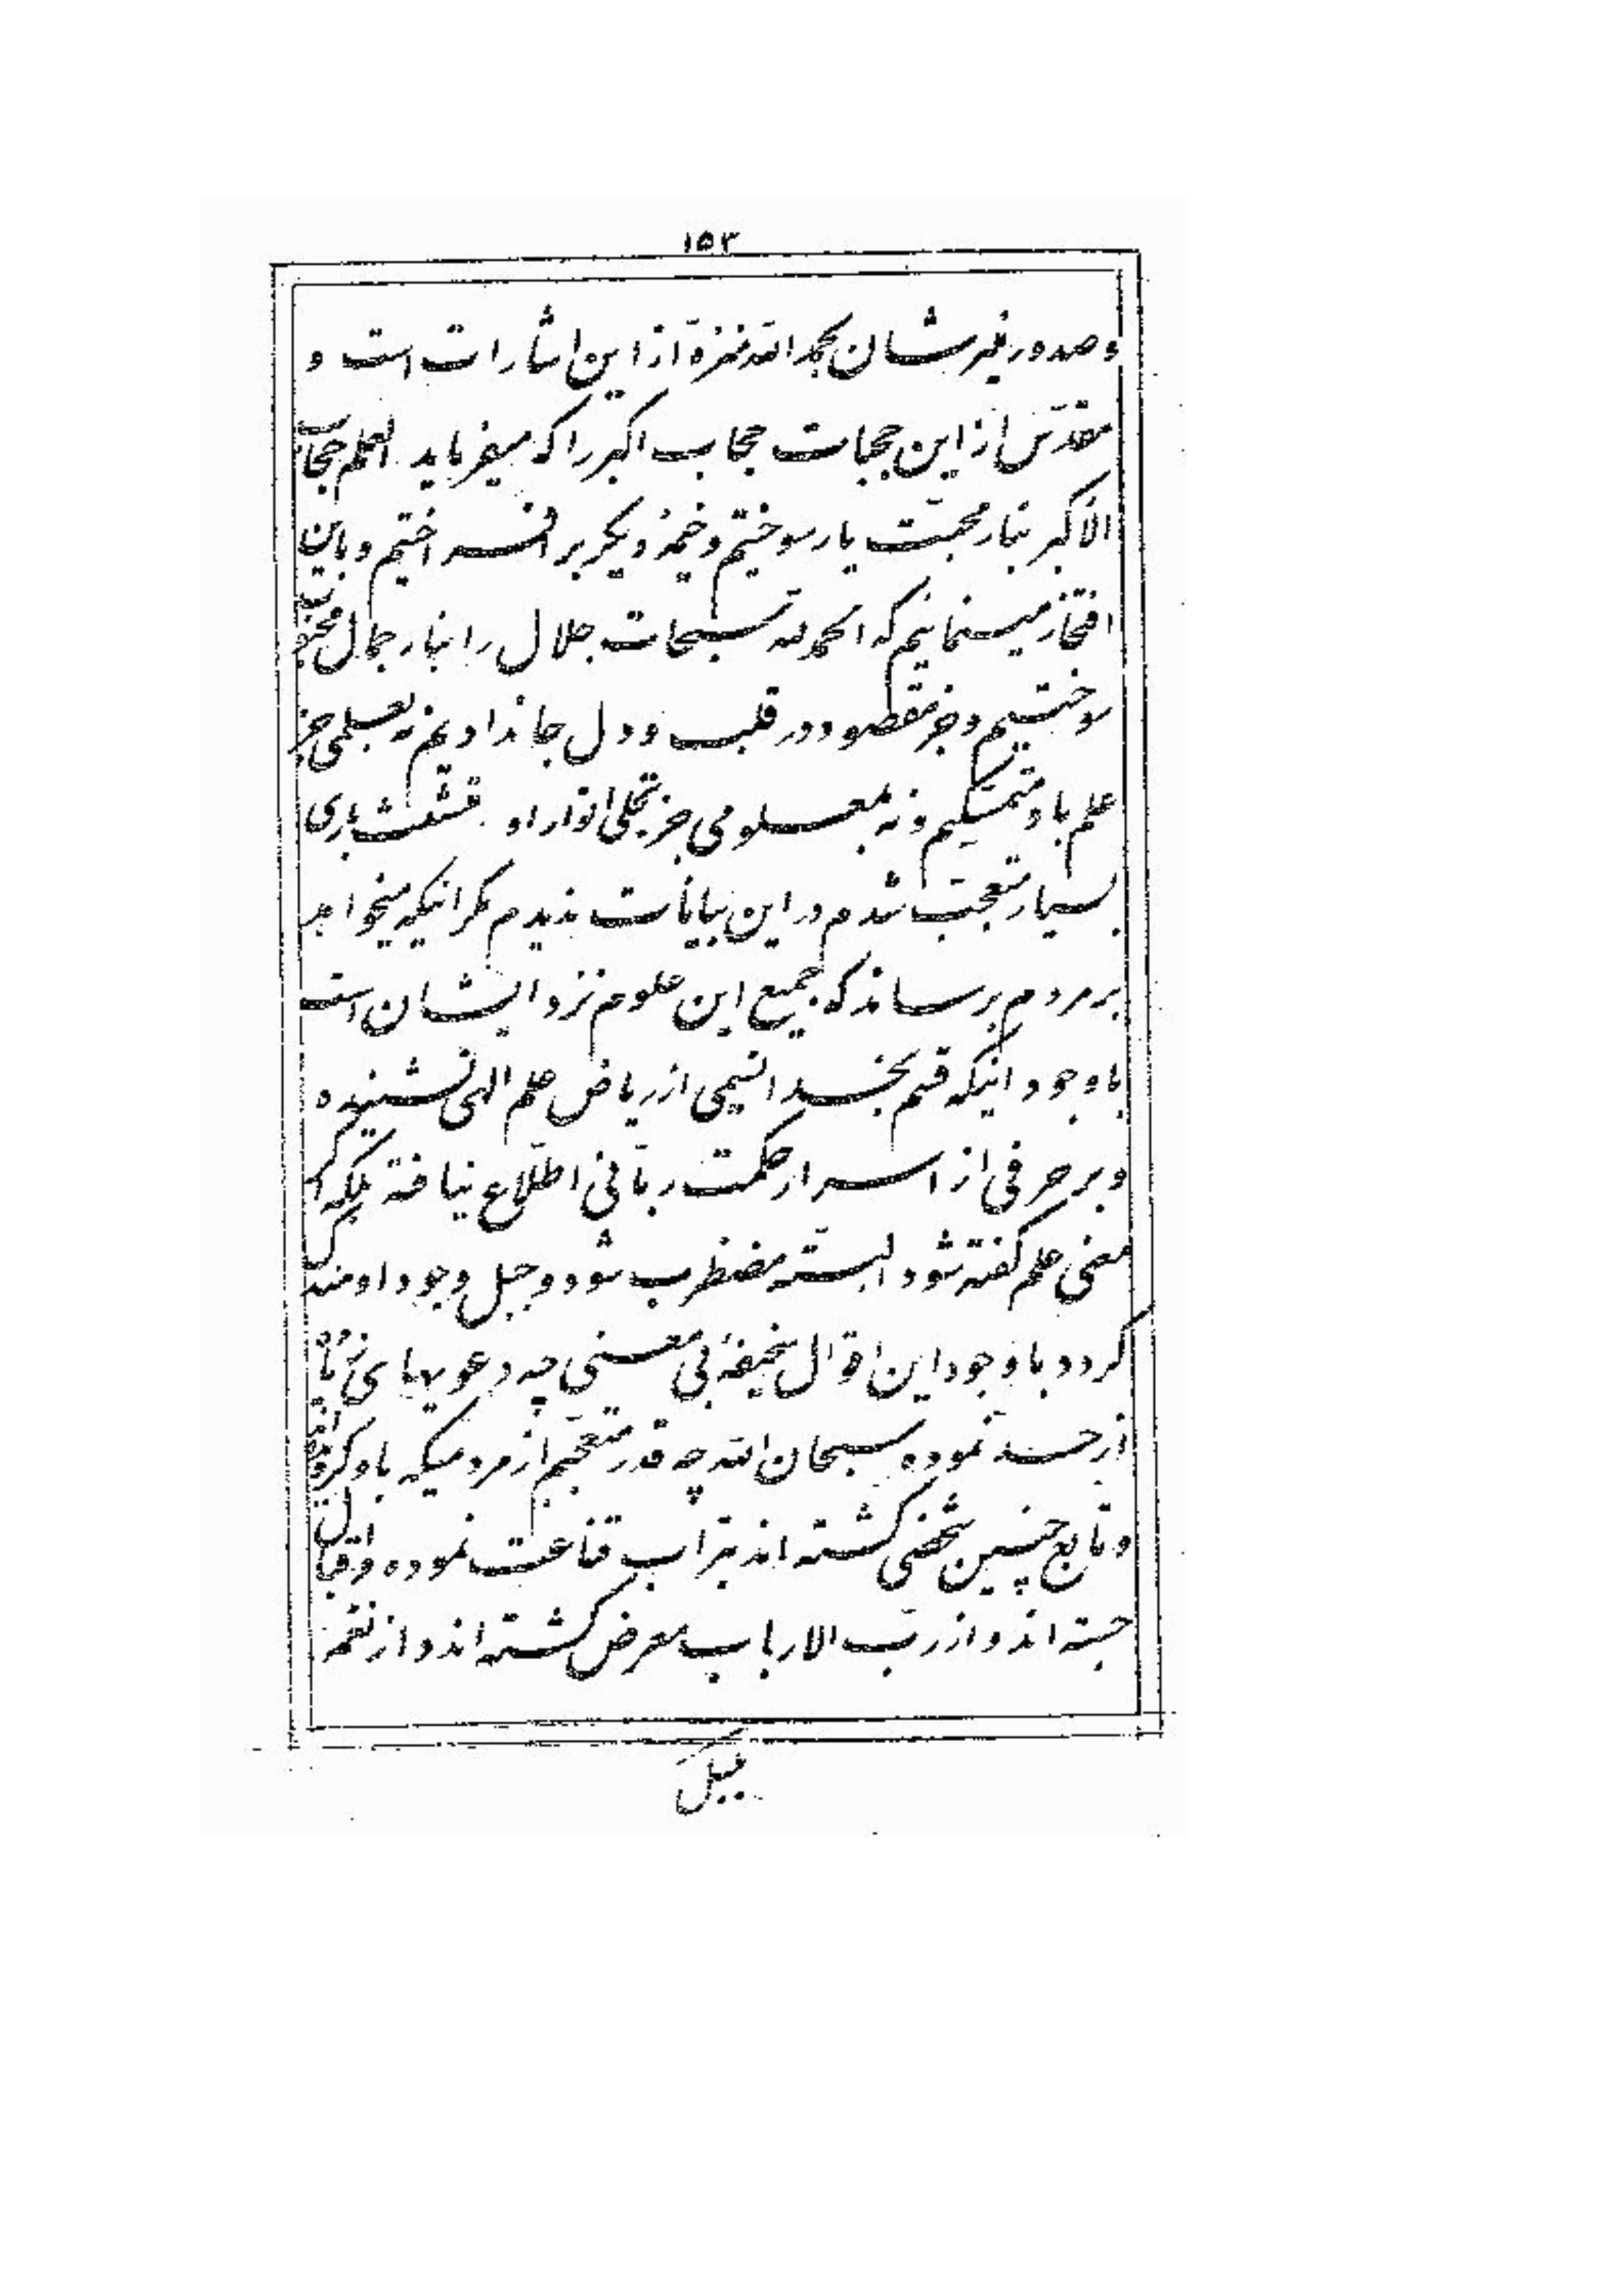 ١٥٣
و صدور منیرشان بحمد الله منزه از این اشارات است و
مقدّس از این حجبات حجاب اکبر را که میفرماید العلم حجاب
الاکبر بنار محبّت یار سوختیم و خیمهٔ دیگر بر افراختیم و باین
افتخار مینمائیم که الحمد لله سبحات جلال را بنار جمال محبوب
سوختیم و جز مقصود در قلب و دل جا ندادیم نه بعلمی جز
علم باو متمسّکیم و نه بمعلومی جز تجلّی انوار او متشبّث باری
بسیار متعجّب شدم در این بیانات ندیدم مگر اینکه میخواهد
بر مردم برساند که جمیع این علوم نزد ایشان است
با وجود اینکه قسم بخدا نسیمی از ریاض علم الهی نشنیده
و بر حرفی از اسرار حکمت ربّانی اطّلاع نیافته بلکه اگر
معنی علم گفته شود البتّه مضطرب شود و جبل وجود او مندک
گردد با وجود این اقوال سخیفهٔ بی معنی چه دعویهای زیاده
از حد نموده سبحان الله چه قدر متعجّبم از مردمیکه باو گرویده‌اند
و تابع چنین شخصی گشته‌اند بتراب قناعت نموده و اقبال
جسته‌اند و از ربّ الارباب معرض گشته‌اند و از نغمه
بلبل